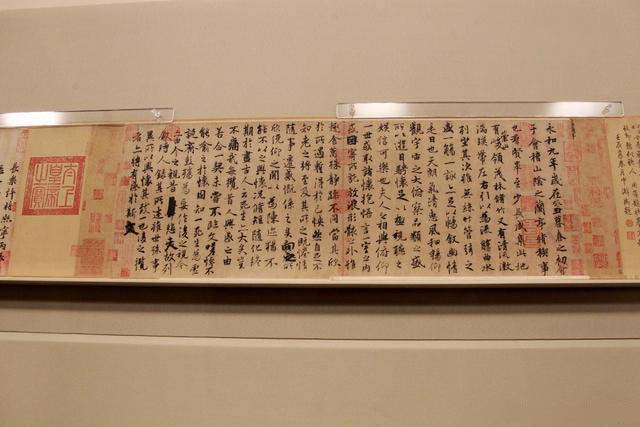 永和九年歲在癸丑暮春之初會
于會稽山陰之蘭亭脩稧事
也羣賢畢至少長咸集此地
有崇山峻領茂林脩竹又有清流激
湍暎帶左右引以為流觴曲水
列坐其次雖無絲竹管弦之
盛一觴一詠亦足以暢敘幽情
是日也天朗氣清惠風和暢仰
觀宇宙之大俯察品類之盛
所以遊目騁懷足以極視聽之
娛信可樂也夫人之相與俯仰
一世或取諸懷抱悟言一室之內
或因寄所託放浪形骸之外雖
趣舍萬殊靜躁不同當其欣
於所遇暫得於己怏然自足不
知老之將至及其所之既惓情
隨事遷感慨係之矣向之所
欣俛仰之閒以為陳迹猶不
能不以之興懷況脩短隨化終
期於盡古人云死生亦大矣豈
不痛哉每攬昔人興感之由
若合一契未嘗不臨文嗟悼不
能喻之於懷固知一死生為虛
誕齊彭殤為妄作後之視今
亦由今之視昔悲夫故列
敘時人錄其所述雖世殊事
異所以興懷其致一也後之攬
者亦將有感於斯文
太上皇帝之寶
長樂許將熙寧丙辰